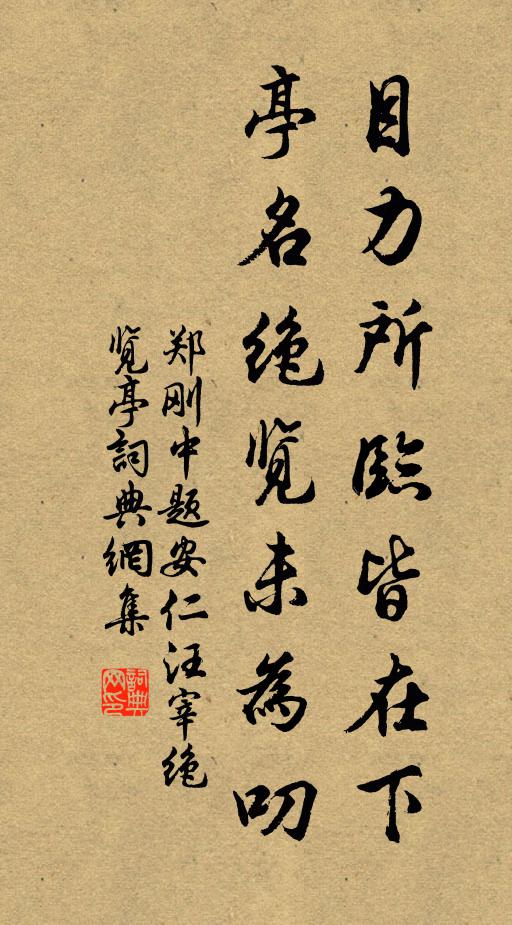 目力所臨皆在下
亭名绝览未為叨
郑刚中题安仁汪宰绝
览亭詞典網集
詞典网印